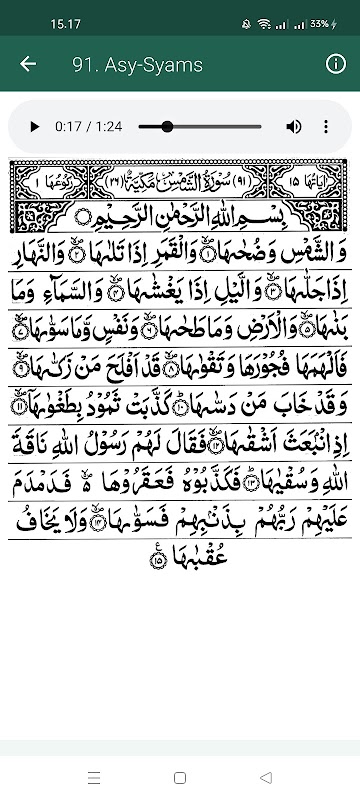 15.17
33%
91. Asy-Syams
0:17 / 1:24
اٰيَاتُهَا ١٥ (٩١) سُوْرَةُ الشَّمْسِ مَكِّيَّةٌ (٢٦) رُكُوْعُهَا ١
بِسْمِ اللّٰهِ الرَّحْمٰنِ الرَّحِيْمِ
وَالشَّمْسِ وَضُحٰىهَا ۝١ وَالْقَمَرِ اِذَا تَلٰىهَا ۝٢ وَالنَّهَارِ
اِذَا جَلّٰىهَا ۝٣ وَالَّيْلِ اِذَا يَغْشٰىهَا ۝٤ وَالسَّمَآءِ وَمَا
بَنٰىهَا ۝٥ وَالْاَرْضِ وَمَا طَحٰىهَا ۝٦ وَنَفْسٍ وَّمَا سَوّٰىهَا ۝٧
فَاَلْهَمَهَا فُجُوْرَهَا وَتَقْوٰىهَا ۝٨ قَدْ اَفْلَحَ مَنْ زَكّٰىهَا ۝٩
وَقَدْ خَابَ مَنْ دَسّٰىهَا ۝١٠ كَذَّبَتْ ثَمُوْدُ بِطَغْوٰىهَآ ۝١١
اِذِ انْۢبَعَثَ اَشْقٰىهَا ۝١٢ فَقَالَ لَهُمْ رَسُوْلُ اللّٰهِ نَاقَةَ
اللّٰهِ وَسُقْيٰهَا ۝١٣ فَكَذَّبُوْهُ فَعَقَرُوْهَا ۵ فَدَمْدَمَ
عَلَيْهِمْ رَبُّهُمْ بِذَنْۢبِهِمْ فَسَوّٰىهَا ۝١٤ وَلَا يَخَافُ
عُقْبٰهَا ۝١٥